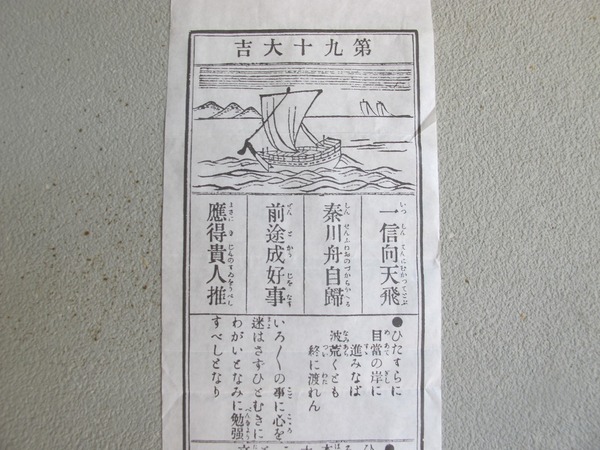 第九十大吉
一信向天飛
秦川舟自歸
前途成好事
應得貴人推
●ひたすらに
目當の岸に
進みなば
波荒くとも
終に渡れん
いろ〳〵の事に心を
迷はさずひとむきに
わがいとなみに勉强
すべしとなり